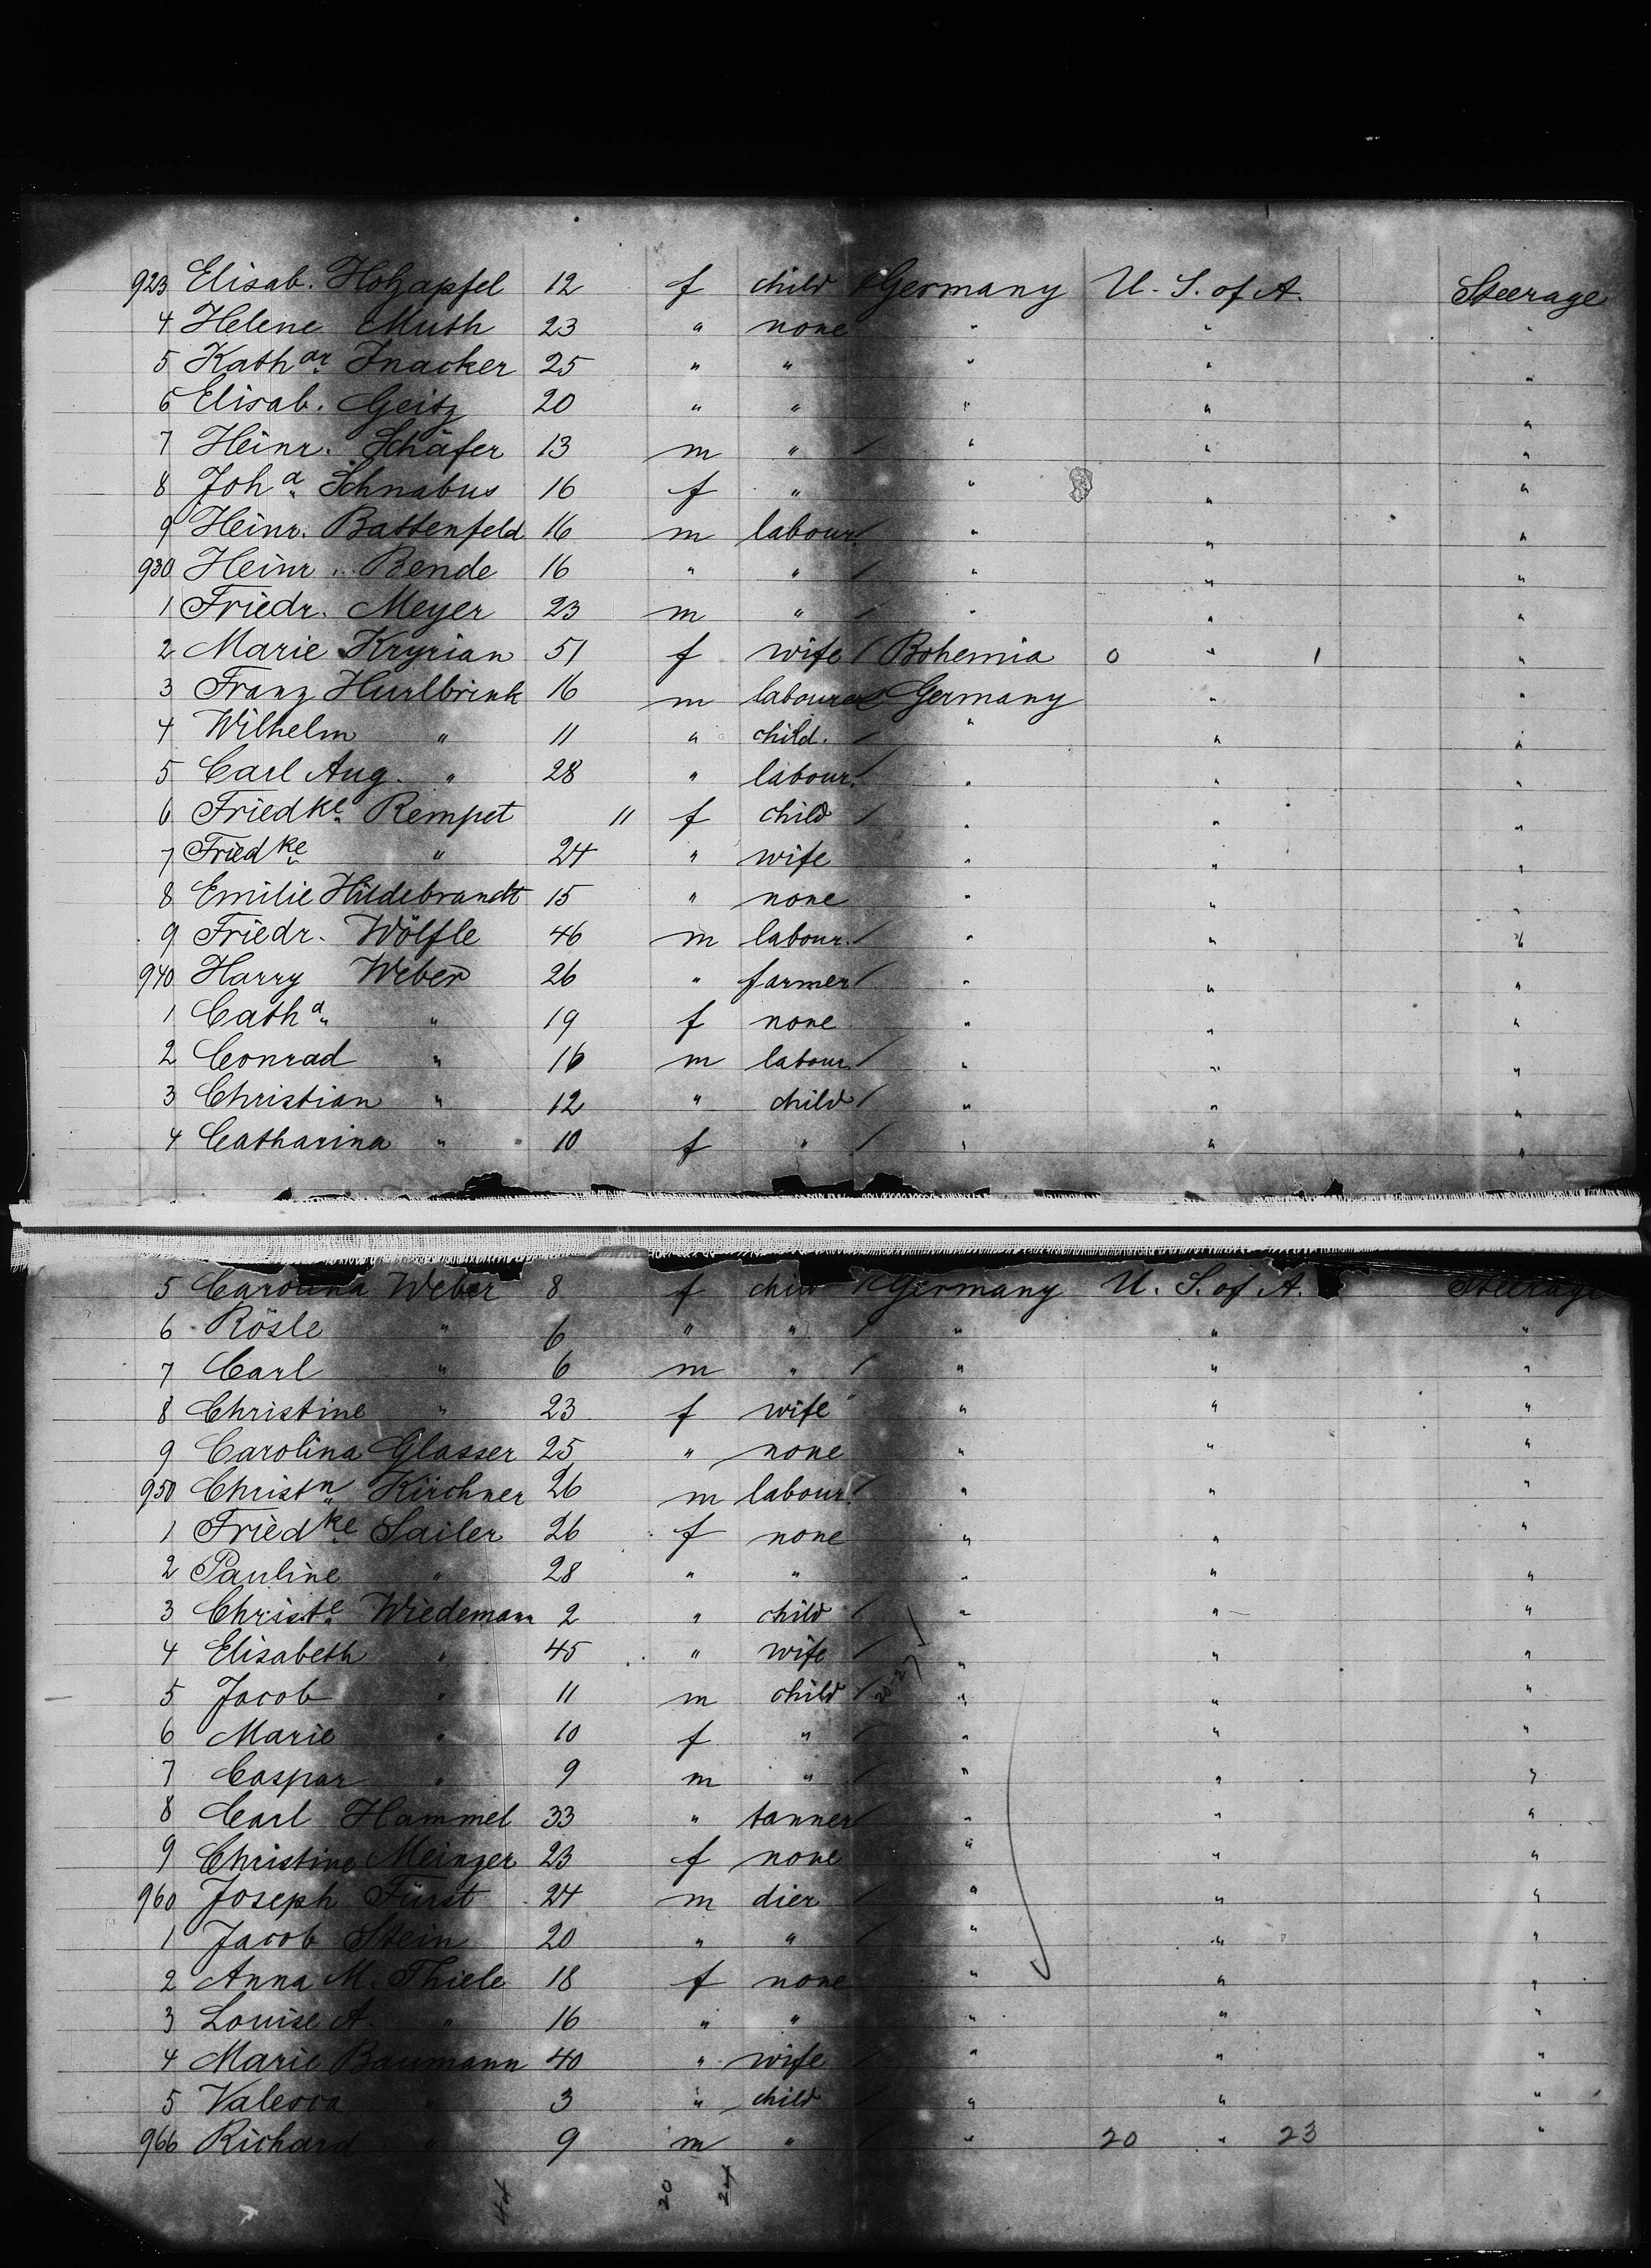 923 Elisab. Holzapfel 12 f child / Germany U. S. of A. Steerage
4 Helene Muth 23 " none " " "
5 Kathar Inacker 25 " " " " "
6 Elisab. Geitz 20 " " " " "
7 Heinr. Schäfer 13 m " / " " "
8 Joha Schnabus 16 f " " " "
9 Heinr. Battenfeld 16 m labour. / " " "
930 Heinr. Bende 16 " " / " " "
1 Friedr. Meyer 23 m " / " " "
2 Marie Kryrian 51 f wife / Bohemia 0 " 1 "
3 Franz Hurlbrink 16 m labourer Germany " "
4 Wilhelm " 11 " child. / " " "
5 Carl Aug. " 28 " labour. / " " "
6 Friedke Rempet 11 f child / " " "
7 Friedke " 24 " wife " " "
8 Emilie Hildebrandt 15 " none " " "
9 Friedr. Wölfle 46 m labour. / " " "
940 Harry Weber 26 " farmer / " " "
1 Catha " 19 f none " " "
2 Conrad " 16 m labour. / " " "
3 Christian " 12 " child / " " "
4 Catharina " 10 f " / " " "
5 Carolina Weber 8 f child / Germany U. S. of A. Steerage
6 Rösle " 6 " " / " " "
7 Carl " 6 m " / " " "
8 Christine " 23 f wife " " "
9 Carolina Glasser 25 " none " " "
950 Christn Kirchner 26 m labour. / " " "
1 Friedke Sailer 26 f none " " "
2 Pauline " 28 " " " " "
3 Christe Wiedemann 2 " child / " " "
4 Elisabeth " 45 " wife / " " "
5 Jacob " 11 m child / " " "
6 Marie " 10 f " / " " "
7 Caspar " 9 m " / " " "
8 Carl Hammel 33 " tanner / " " "
9 Christine Meinzer 23 f none " " "
960 Joseph Fürst 24 m dier / " " "
1 Jacob Stein 20 " " / " " "
2 Anna M. Thiele 18 f none " " "
3 Louise A. " 16 " " " " "
4 Marie Baumann 40 " wife / " " "
5 Valesca " 3 " child / " " "
966 Richard " 9 m " / " 20 " 23 "
44 20 24